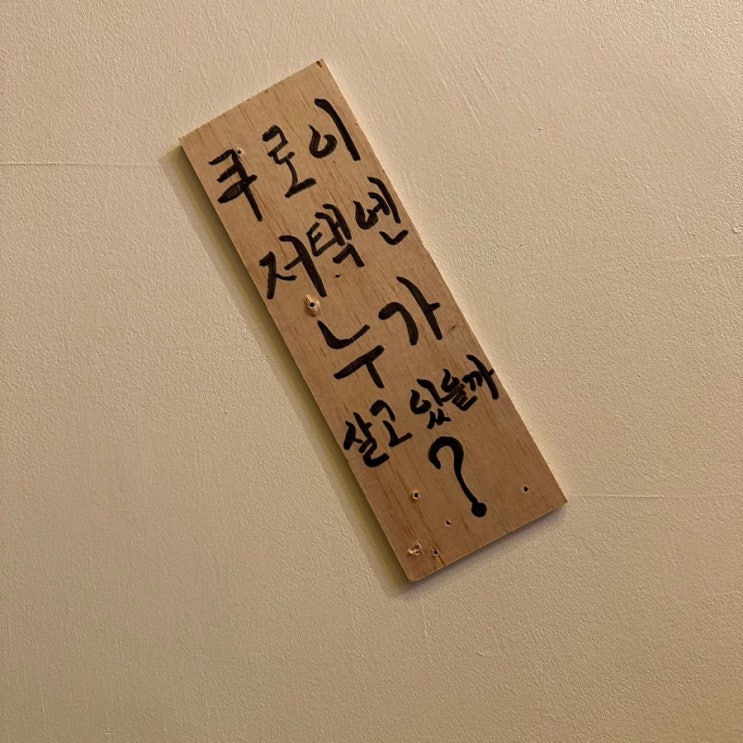 쿠로이
저택엔
누가
살고 있을까
?